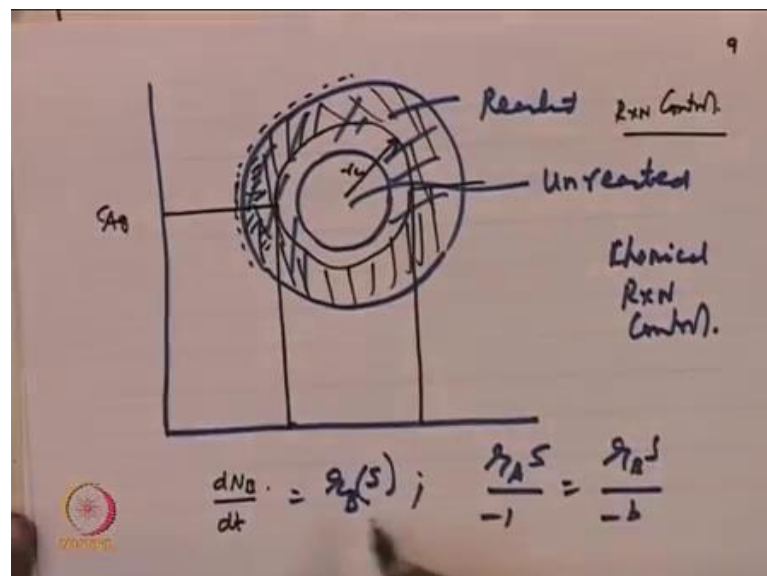 9
Reactant RXN Control.
Unreacted
C_A0
Chemical
RXN
Control.
dN_B/dt = r_B(S) ; r_A S/-1 = r_B S/-b